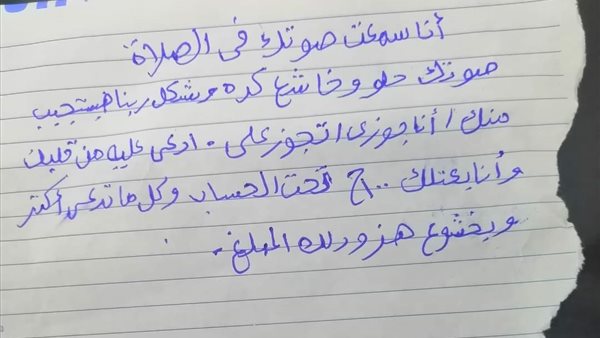 أنا سمعت صوتك في الصلاة
صوتك حلو وخاشع كده وشكل ربنا هيستجيب
منك / أنا جوزي اتجوز علي . ادعي عليه من قلبك
وأنا بعتلك ١٠٠ج تحت الحساب وكل ما تدعي أكتر
وبخشوع هزودلك المبلغ .